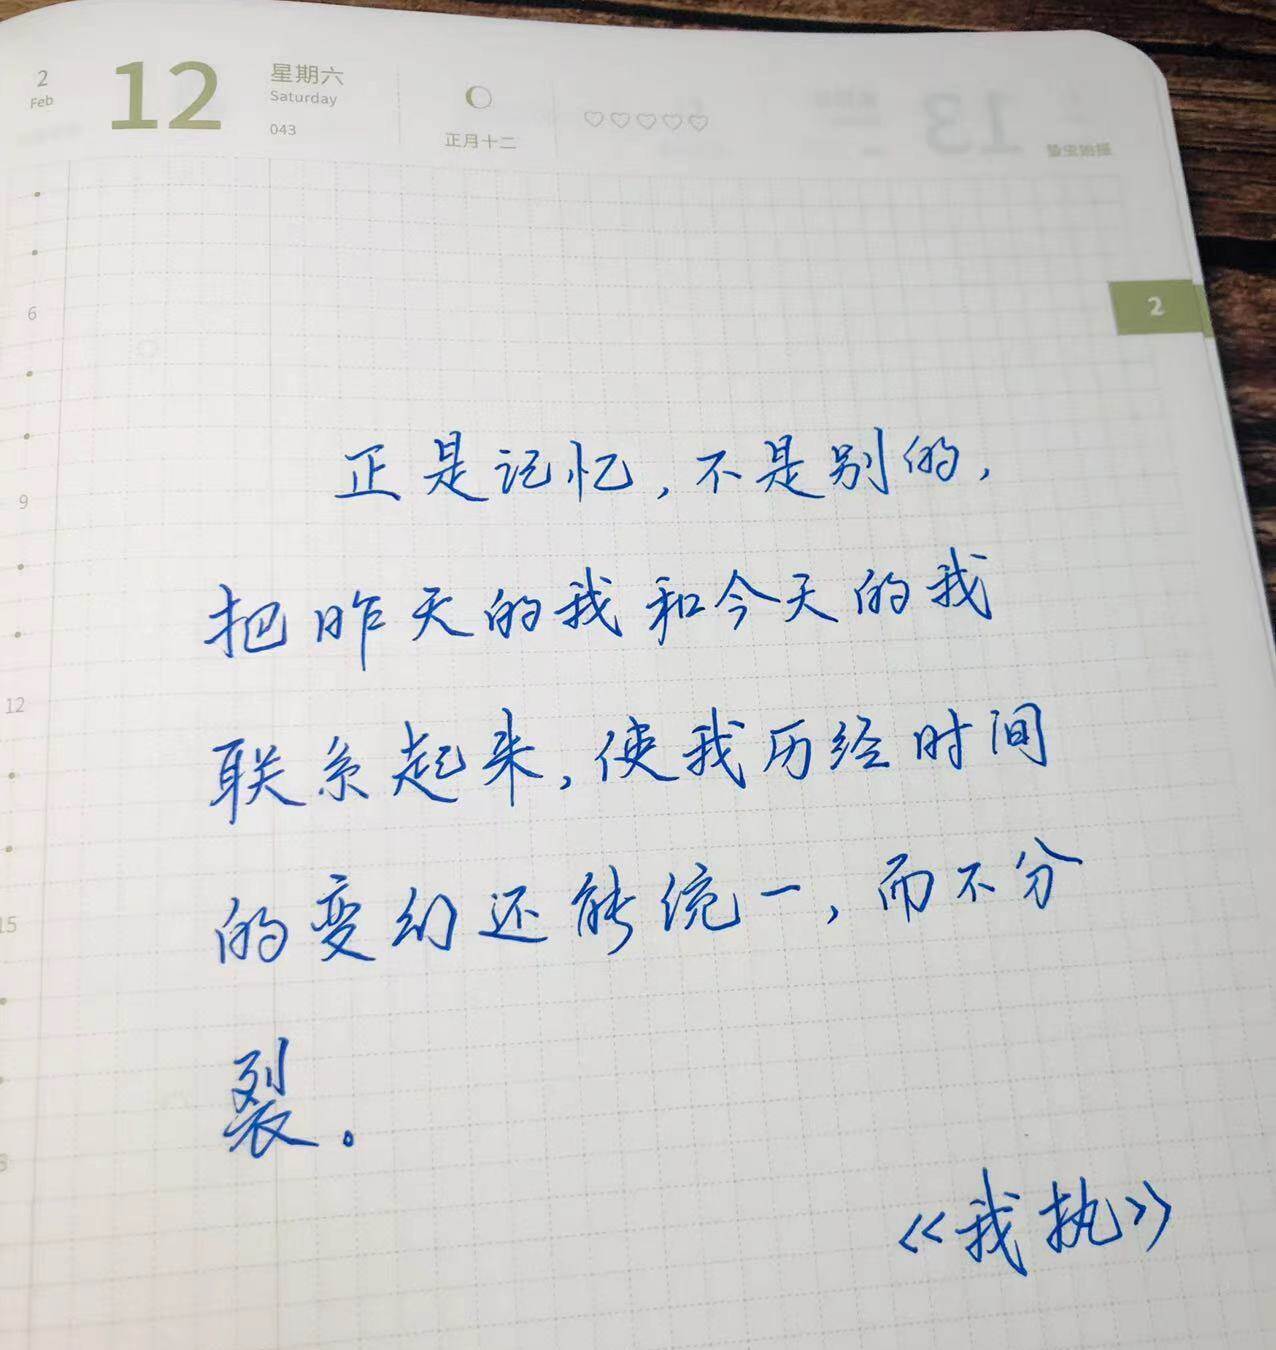 2
Feb
12
星期六
Saturday
043
正月十二
13
2
6
9
12
15
正是记忆,不是别的,
把昨天的我和今天的我
联系起来,使我历经时间
的变幻还能统一,而不分
裂。
《我执》